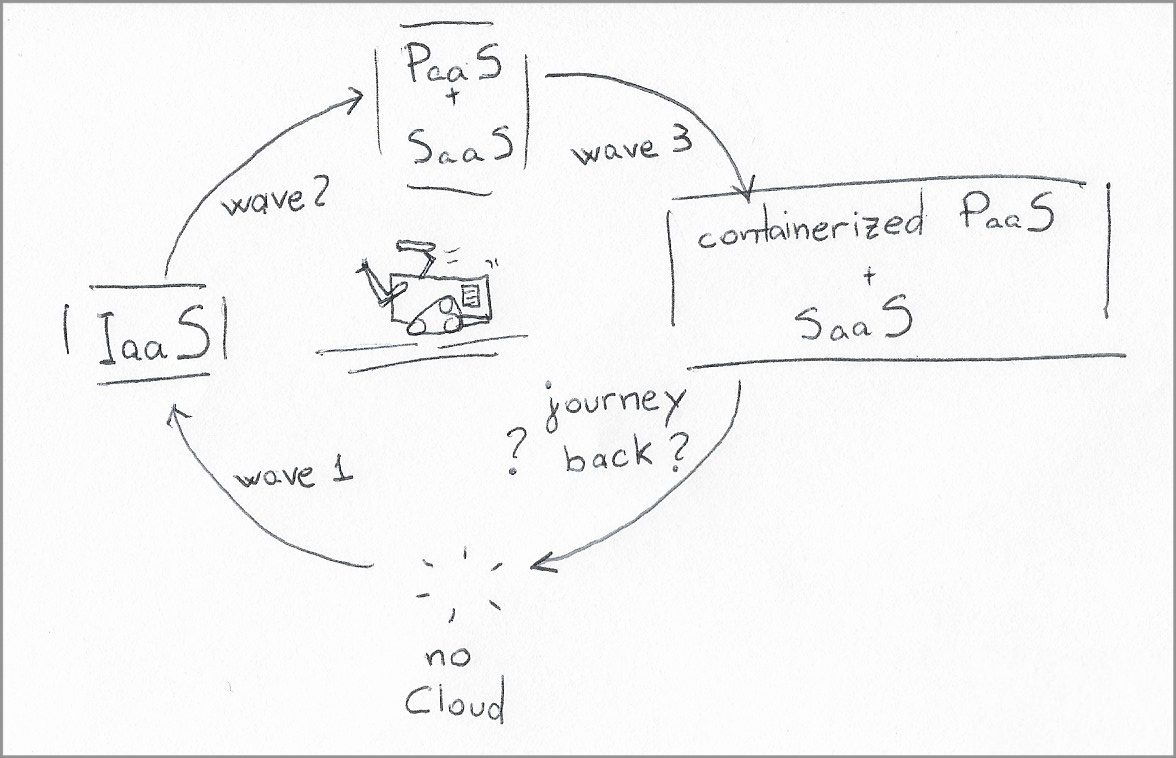 PaaS
+
SaaS
wave 3
wave 2
containerized PaaS
+
SaaS
IaaS
journey
? back ?
wave 1
no
Cloud